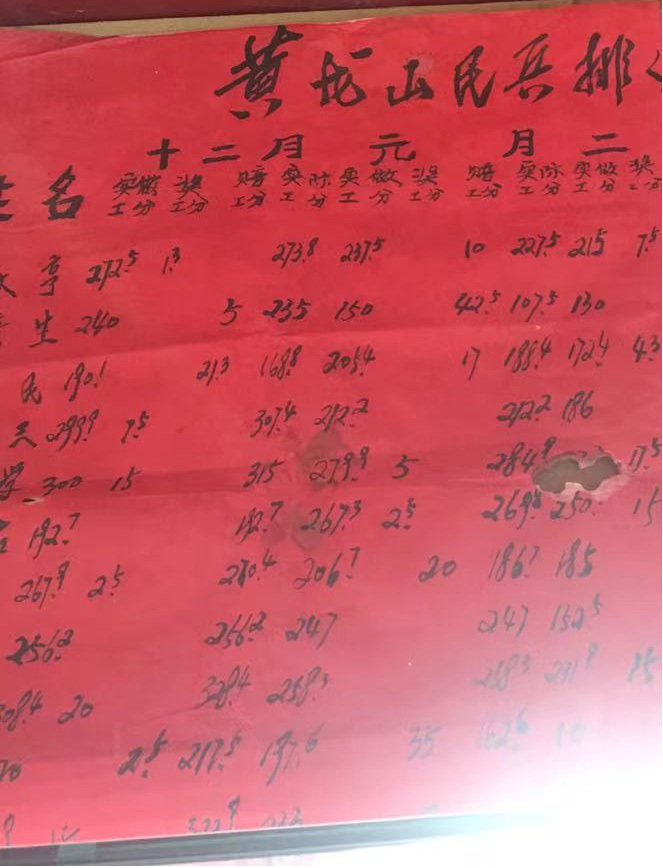 黄龙山民兵排
十二月 元 月 二
姓名 实做工分 奖工分 赔工分 实际工分 实做工分 奖工分 赔工分 实际工分 实做工分 奖工分
亨 272.5 1.3 273.8 237.5 10 227.5 215 7.5
生 240 5 235 150 42.5 107.5 130
民 190.1 21.3 168.8 205.4 17 188.4 172.4 4.3
299.9 7.5 307.4 212.2 212.2 186
学 300 15 315 279.9 5 284.9 17.5
192.7 192.7 267.3 2.5 269.8 250. 15
267.9 2.5 270.4 206.7 20 186.7 185
256.2 256.2 247 247 152.5
308.4 20 328.4 258.3 258.3 291.9 15
2.5 217.5 197.6 35 162.6